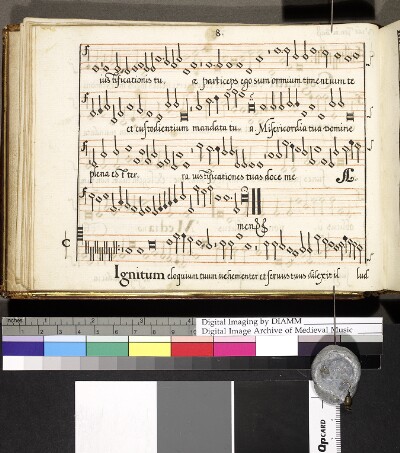 8.
iustificationis tu, æ particeps ego sum omnium timentium te
et custodientium mandata tu a. Misericordia tua Domine
plena est ter. ra iustificationes tuas doce me A.
men
Ignitum eloquium tuum vehementer et servus tuus dilexit il lud
inches 1 2 3 4
Digital Imaging by DIAMM
Digital Image Archive of Medieval Music
QPCARD